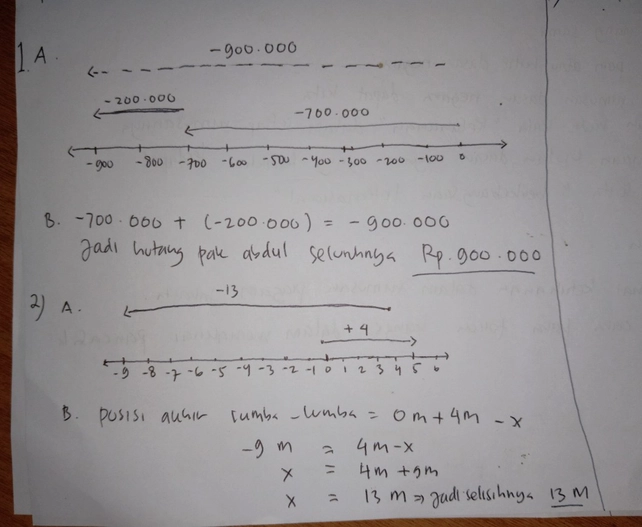 1. A.
-900.000
-200.000 -700.000
-900 -800 -700 -600 -500 -400 -300 -200 -100 0
B. -700.000 + (-200.000) = -900.000
Jadi hutang pak abdul seluruhnya Rp. 900.000
-13
2) A.
+4
-9 -8 -7 -6 -5 -4 -3 -2 -1 0 1 2 3 4 5 6
B. posisi akhir lumba-lumba = 0m + 4m - x
-9 m = 4m - x
x = 4m + 9m
x = 13 m ⇒ Jadi selisihnya 13 M